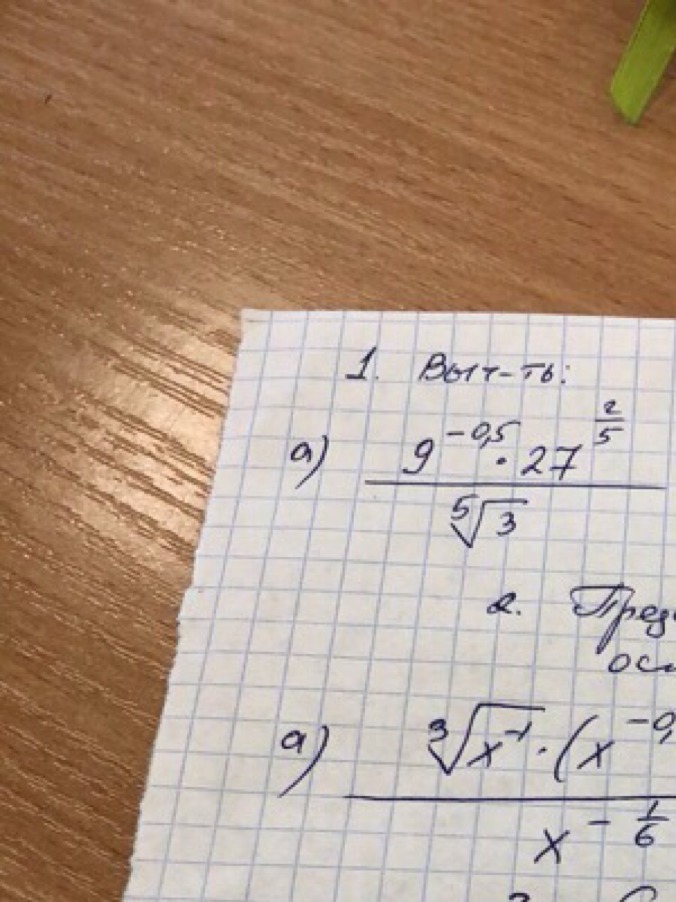 1. Выч-ть:
а) \frac{9^{-0,5} \cdot 27^{\frac{2}{5}}}{\sqrt[5]{3}}
2.
а) \frac{\sqrt[3]{x^{-1}} \cdot (x^{-0,}}{x^{-\frac{1}{6}}}